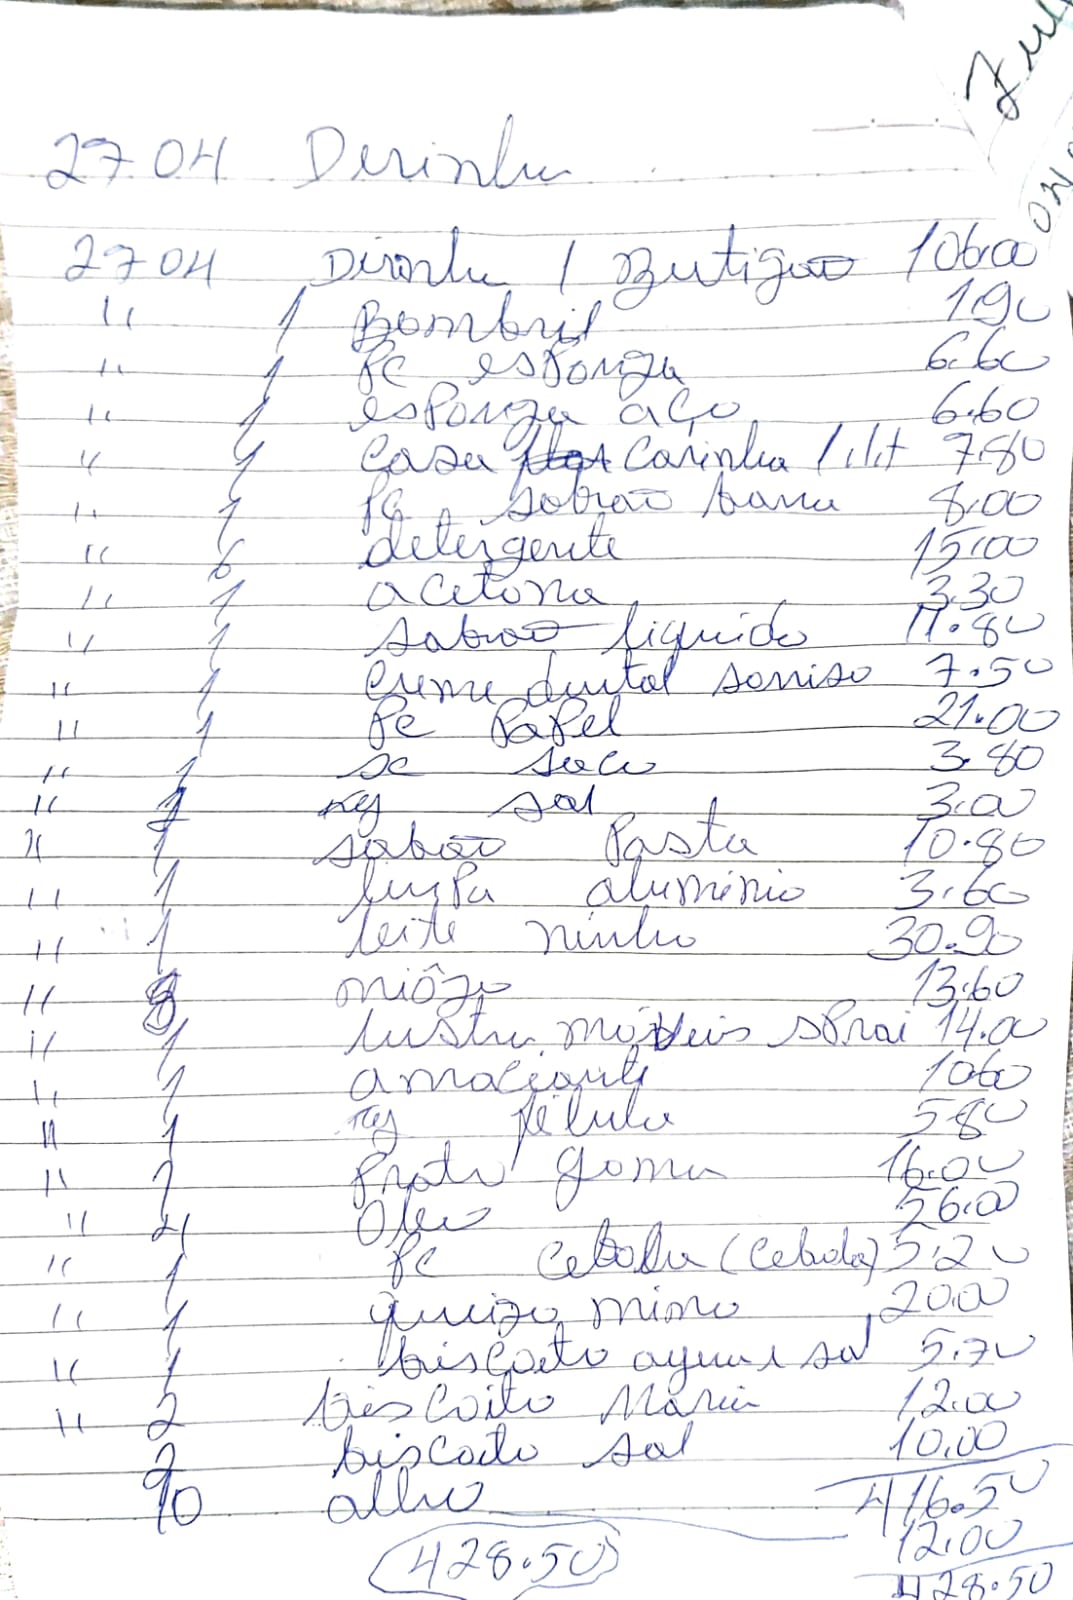 27 04 Derinha
27 04 Dirinha 1 Butigão 106.00
" 1 Bombril 1.90
" 1 Pc esponza 6.60
" 1 esponza aço 6.60
" 1 Casa Carinha 1 lit 7.80
" 1 Pc sobrão barra 8.00
" 6 detezgente 15.00
" 1 acetona 3.30
" 1 sabrão liquido 11.80
" 1 Creme dental sorriso 7.50
" 1 Pc Papel 21.00
" 1 sc saco 3.80
" 1 kg sal 3.00
" 1 sabão Pasta 10.80
" 1 limpa aluminio 3.60
" 1 leite ninho 30.90
" 8 miôzo 13.60
" 1 lustra móveis sprai 14.00
" 1 amaciante 10.60
" 1 kg 5.80
" Prato goma 16.00
" 4 Oleo 26.00
" 1 Pc Cebolla (Cebola) 5.20
" 1 queizo mimo 20.00
" 1 biscoito agua e sal 5.70
" 2 biscoito Maria 12.00
2 biscoito sal 10.00
10 alho 416.50
12.00
428.50 428.50